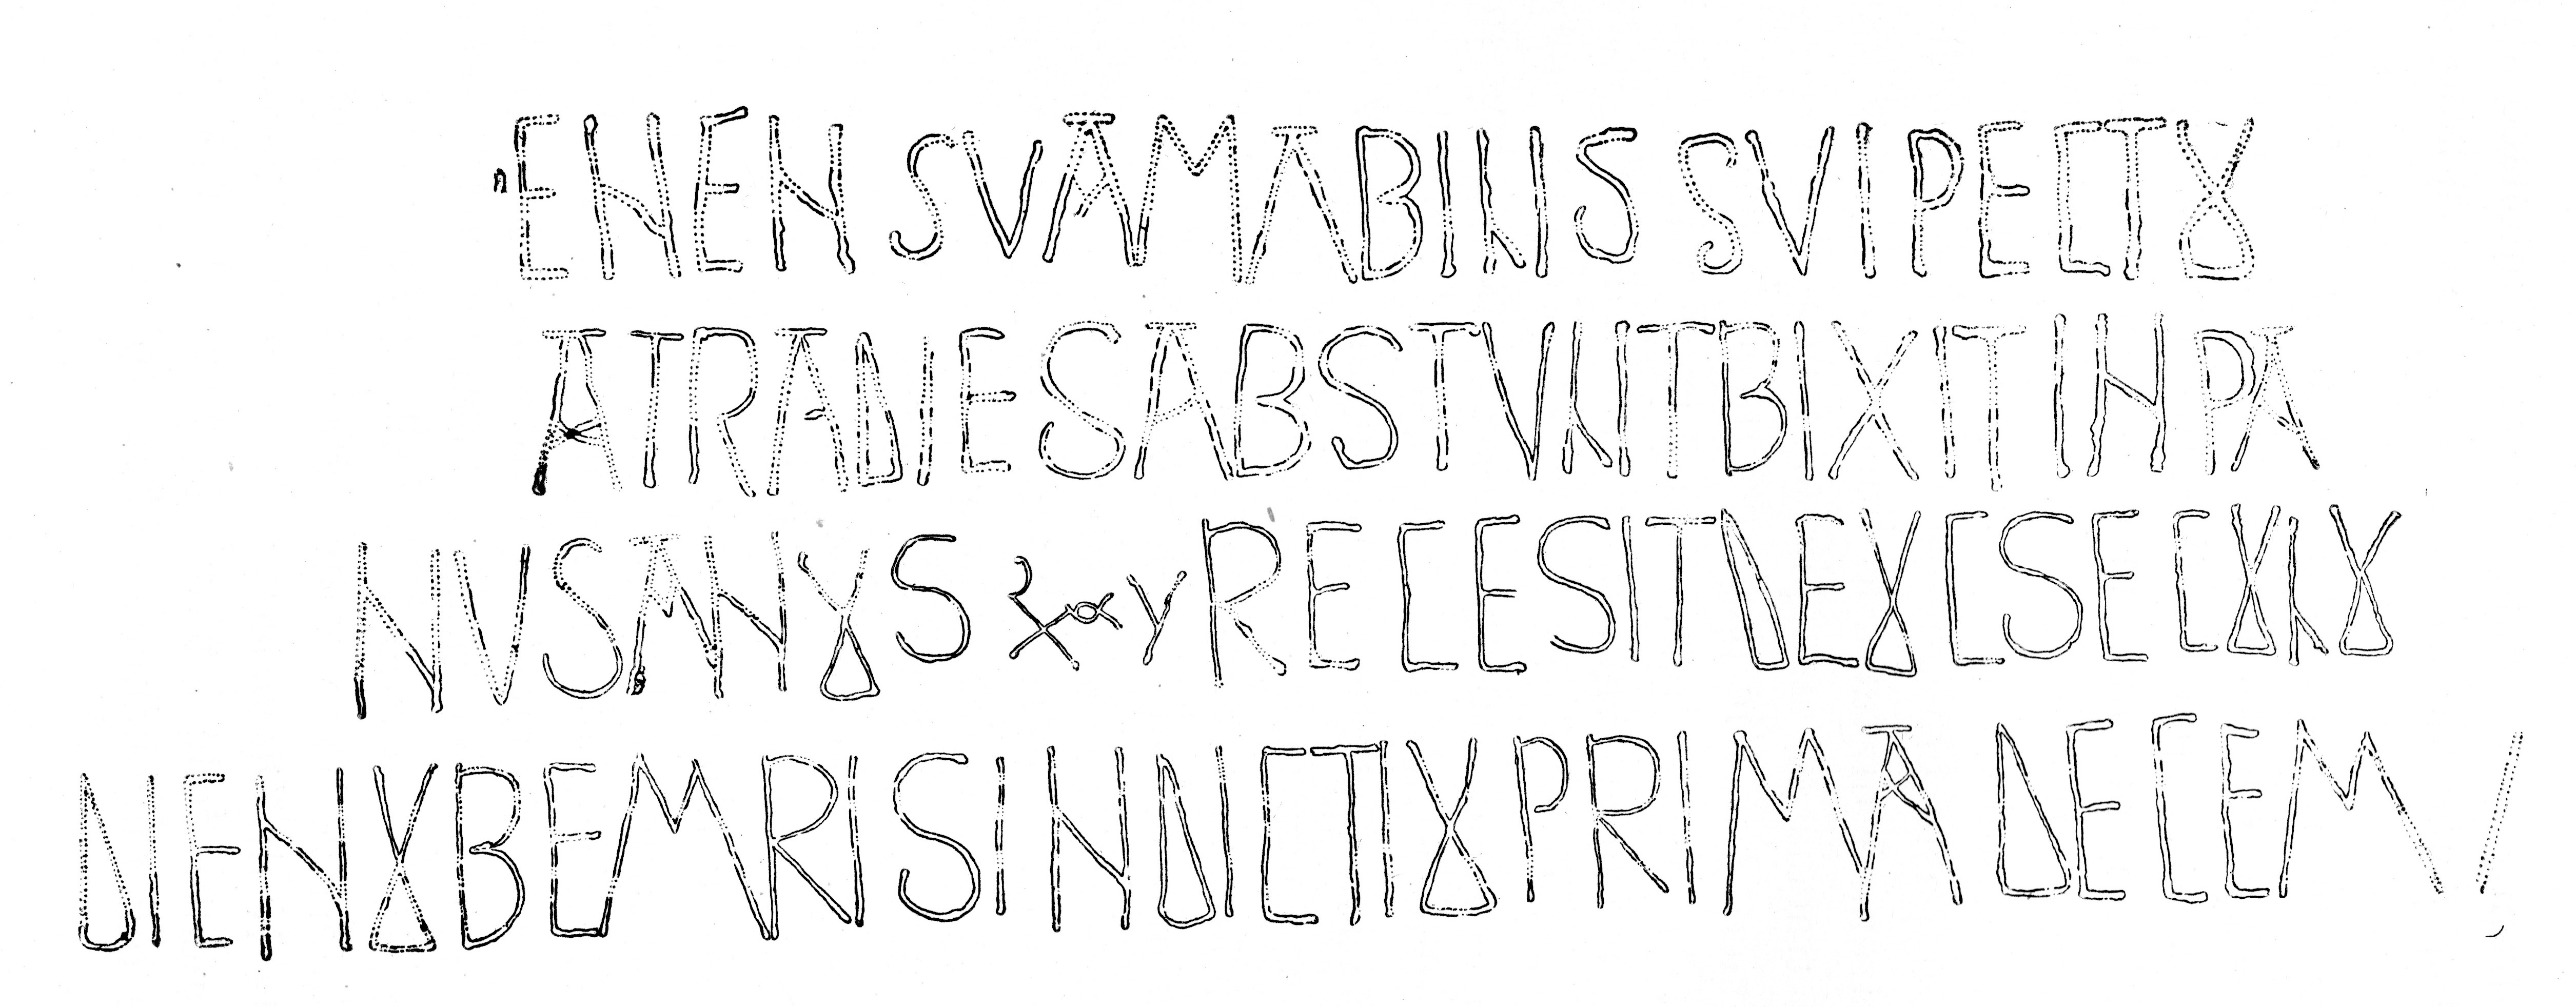 ENEN SVAMABILIS SVI PECTO
ATRA DIES ABSTVLIT BIXIT IN PA
NVS ANNOS RECESIT DE OC SECOLO
DIE NOBEMRIS INDICTIO PRIMA DECEM